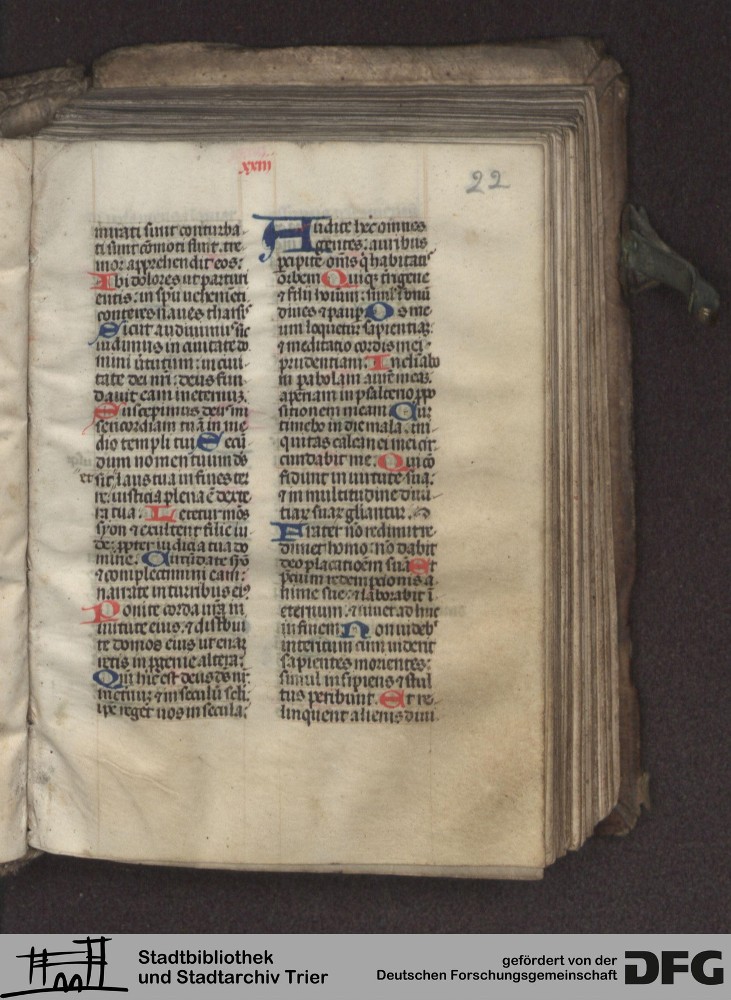 xxiii
22
mirati sunt conturba
ti sunt cōmoti sunt. tre
mor apprehendit eos:
Ibi dolores ut parturi
entis: in spū uehemēti
conteres naues tharsis
Sicut audiuimus sic
uidimus in ciuitate do
mini uirtutum: in ciui
tate dei nri: deus fun
dauit eam in eternum.
Suscepimus deus mi
sericordiam tuā in me
dio templi tui Secū
dum nomen tuum ds
et sic laus tua in fines ter
re: iusticia plena ē dexte
ra tua. Letetur mōs
syon et exultent filie iu
de: ppter iudicia tua do
mine. Circūdate syō
et complectimini eam:
narrate in turribus ei9
Ponite corda ura in
uirtute eius: et distribui
te domos eius ut enar
retis in pgenie altera:
Qm hic est deus ds nr
in eternū et in seculū seli:
ipe reget nos in secula:
Audite hec omnes
gentes: auribus
pcipite oms q habitatis
orbem Quiqz trigene
et filii hoīum: simul in unū
diues et paup Os me
um loquetur sapientiā:
et meditatio cordis mei
prudentiam: Inclinabo
in pabolam aurē meā:
aperiam in psalterio ppo
sitionem meam Cur
timebo in die mala: ini
quitas calcanei mei cir
cumdabit me: Qui cō
fidunt in uirtute sua:
et in multitudine diui
tiar suar gliantur.
Frater nō redimit re
dimet homo: nō dabit
deo placatiōem suā Et
pcium redempcionis a
nime sue: et laborabit ī
eternum. et uiuet adhuc
in finem Non uideb'
interitum cum uiderit
sapientes morientes:
simul insipiens et stul
tus peribunt. Et re
linquent alienis diui
Stadtbibliothek
und Stadtarchiv Trier
gefördert von der
Deutschen Forschungsgemeinschaft
DFG